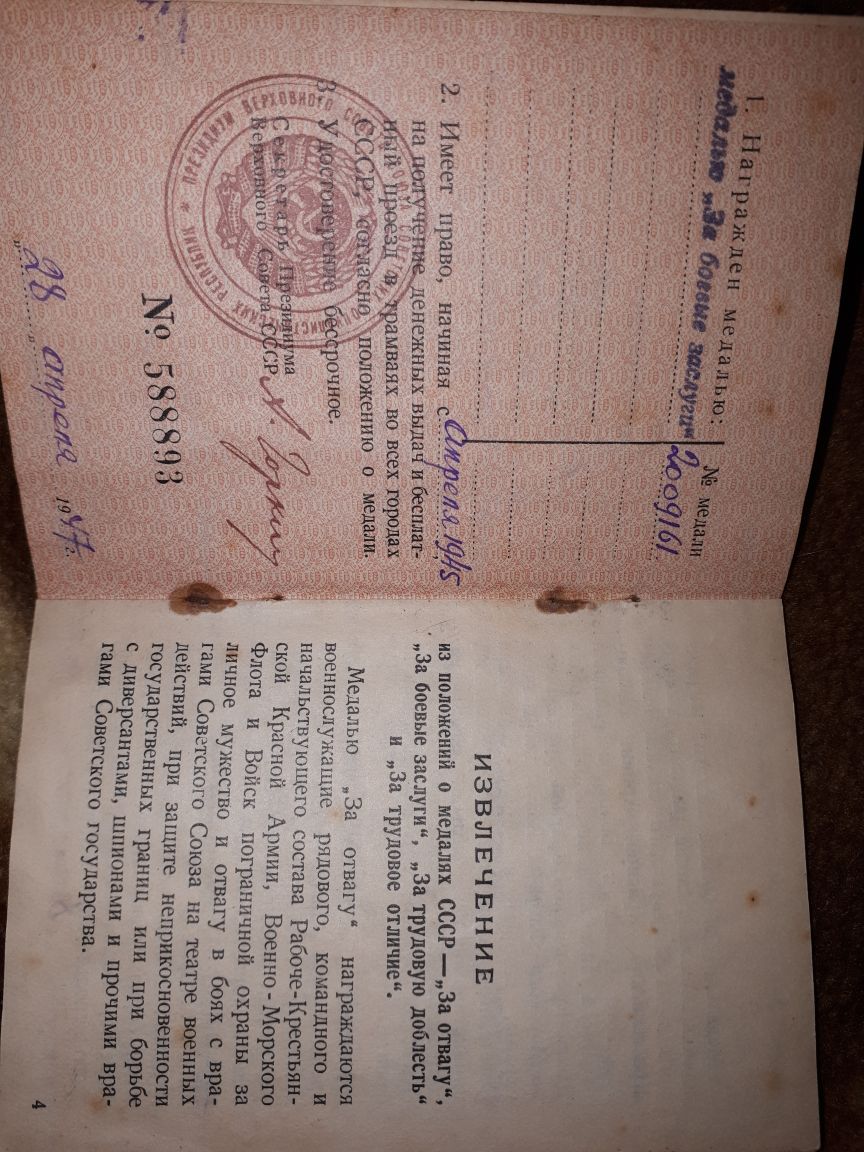 1. Награжден медалью:
№ медали
медалью „За боевые заслуги“ 2009161
2. Имеет право, начиная с апреля 1945
на получение денежных выдач и бесплат-
ный проезд в трамваях во всех городах
СССР, согласно положению о медали.
3. Удостоверение бессрочное.
Секретарь Президиума
Верховного Совета СССР А. Горкин
ПРЕЗИДИУМ ВЕРХОВНОГО СОВЕТА СОЮЗА СОВЕТСКИХ СОЦИАЛИСТИЧЕСКИХ РЕСПУБЛИК
№ 588893
„28“ апреля 1947 г.
ИЗВЛЕЧЕНИЕ
из положений о медалях СССР — „За отвагу“,
„За боевые заслуги“, „За трудовую доблесть“
и „За трудовое отличие“.
Медалью „За отвагу“ награждаются
военнослужащие рядового, командного и
начальствующего состава Рабоче-Крестьян-
ской Красной Армии, Военно-Морского
Флота и Войск пограничной охраны за
личное мужество и отвагу в боях с вра-
гами Советского Союза на театре военных
действий, при защите неприкосновенности
государственных границ или при борьбе
с диверсантами, шпионами и прочими вра-
гами Советского государства.
4